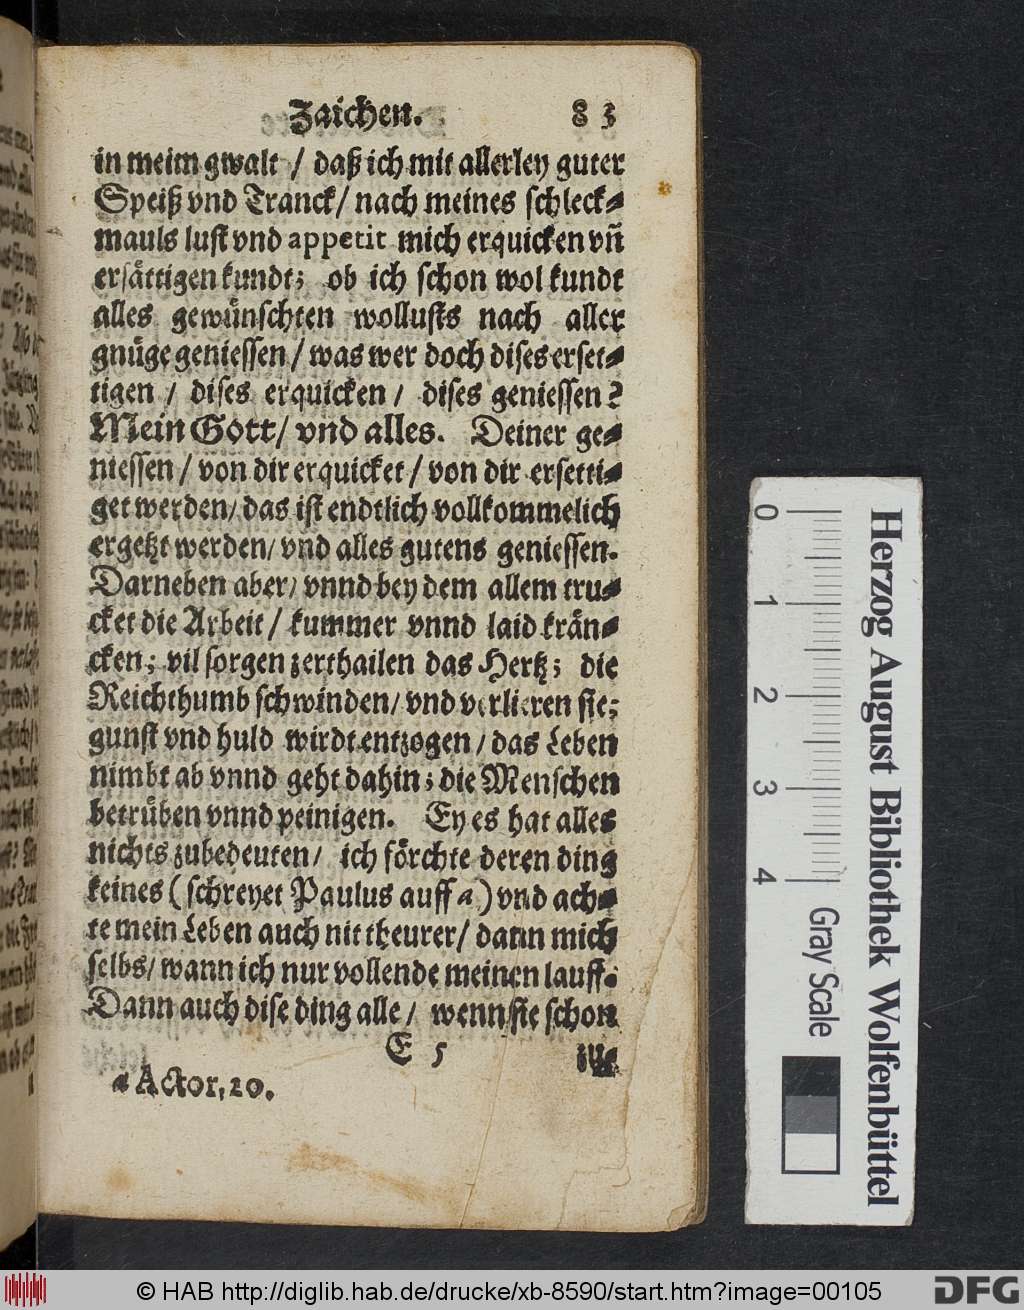 Zaichen. 83
in meim gwalt / daß ich mit allerley guter
Speiß vnd Tranck / nach meines schleck-
mauls lust vnd appetit mich erquicken vñ
ersättigen kundt; ob ich schon wol kundt
alles gewünschten wollusts nach aller
gnüge geniessen / was wer doch dises erset-
tigen / dises erquicken / dises geniessen?
Mein Gott / vnd alles. Deiner ge-
niessen / von dir erquicket / von dir ersetti-
get werden / das ist endtlich vollkommelich
ergetzt werden / vnd alles gutens geniessen.
Darneben aber / vnnd bey dem allem tru-
cket die Arbeit / kummer vnnd laid krän-
cken; vil sorgen zerthailen das Hertz; die
Reichthumb schwinden / vnd verlieren sie;
gunst vnd huld wirdt entzogen / das Leben
nimbt ab vnnd geht dahin; die Menschen
betrüben vnnd peinigen. Ey es hat alles
nichts zubedeuten / ich förchte deren ding
keines (schreyet Paulus auff a) vnd ach-
te mein Leben auch nit theurer / dann mich
selbs / wann ich nur vollende meinen lauff.
Dann auch dise ding alle / wenn sie schon
E 5
a Actor. 20.
0 1 2 3 4
Gray Scale
Herzog August Bibliothek Wolfenbüttel
© HAB http://diglib.hab.de/drucke/xb-8590/start.htm?image=00105
DFG